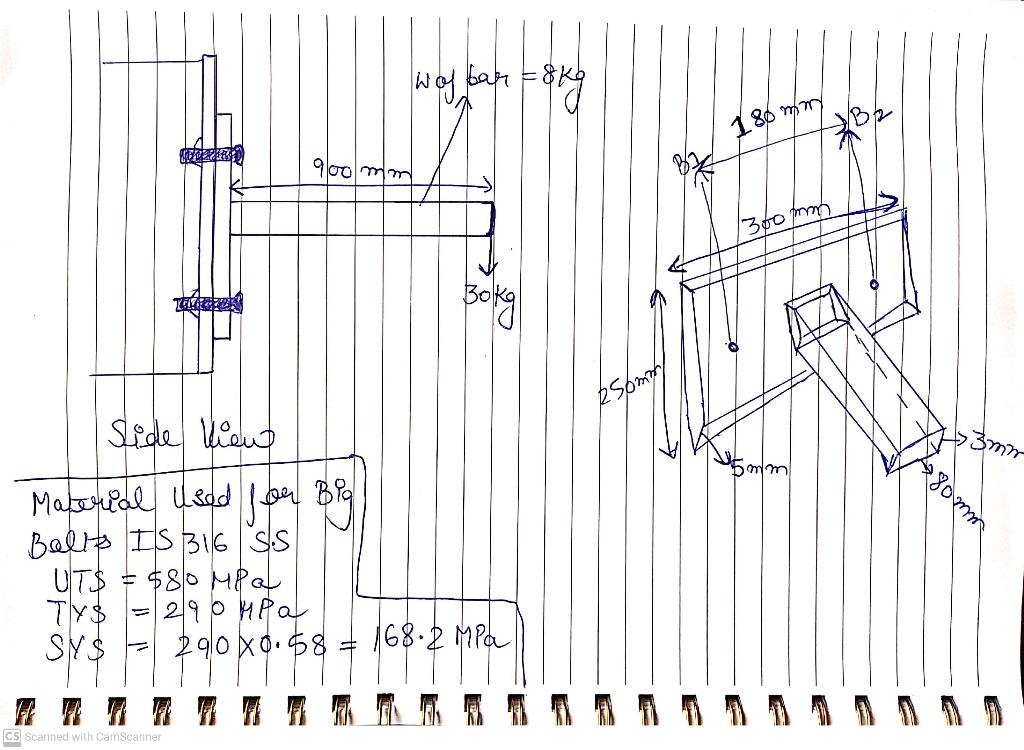 W of bar = 8kg
900 mm
30kg
Side View
180 mm
B1
B2
300 mm
250mm
5mm
3mm
80mm
Material Used for Big
Bolts IS 316 S.S
UTS = 580 MPa
TYS = 290 MPa
SYS = 290 X0.58 = 168.2 MPa
CS Scanned with CamScanner